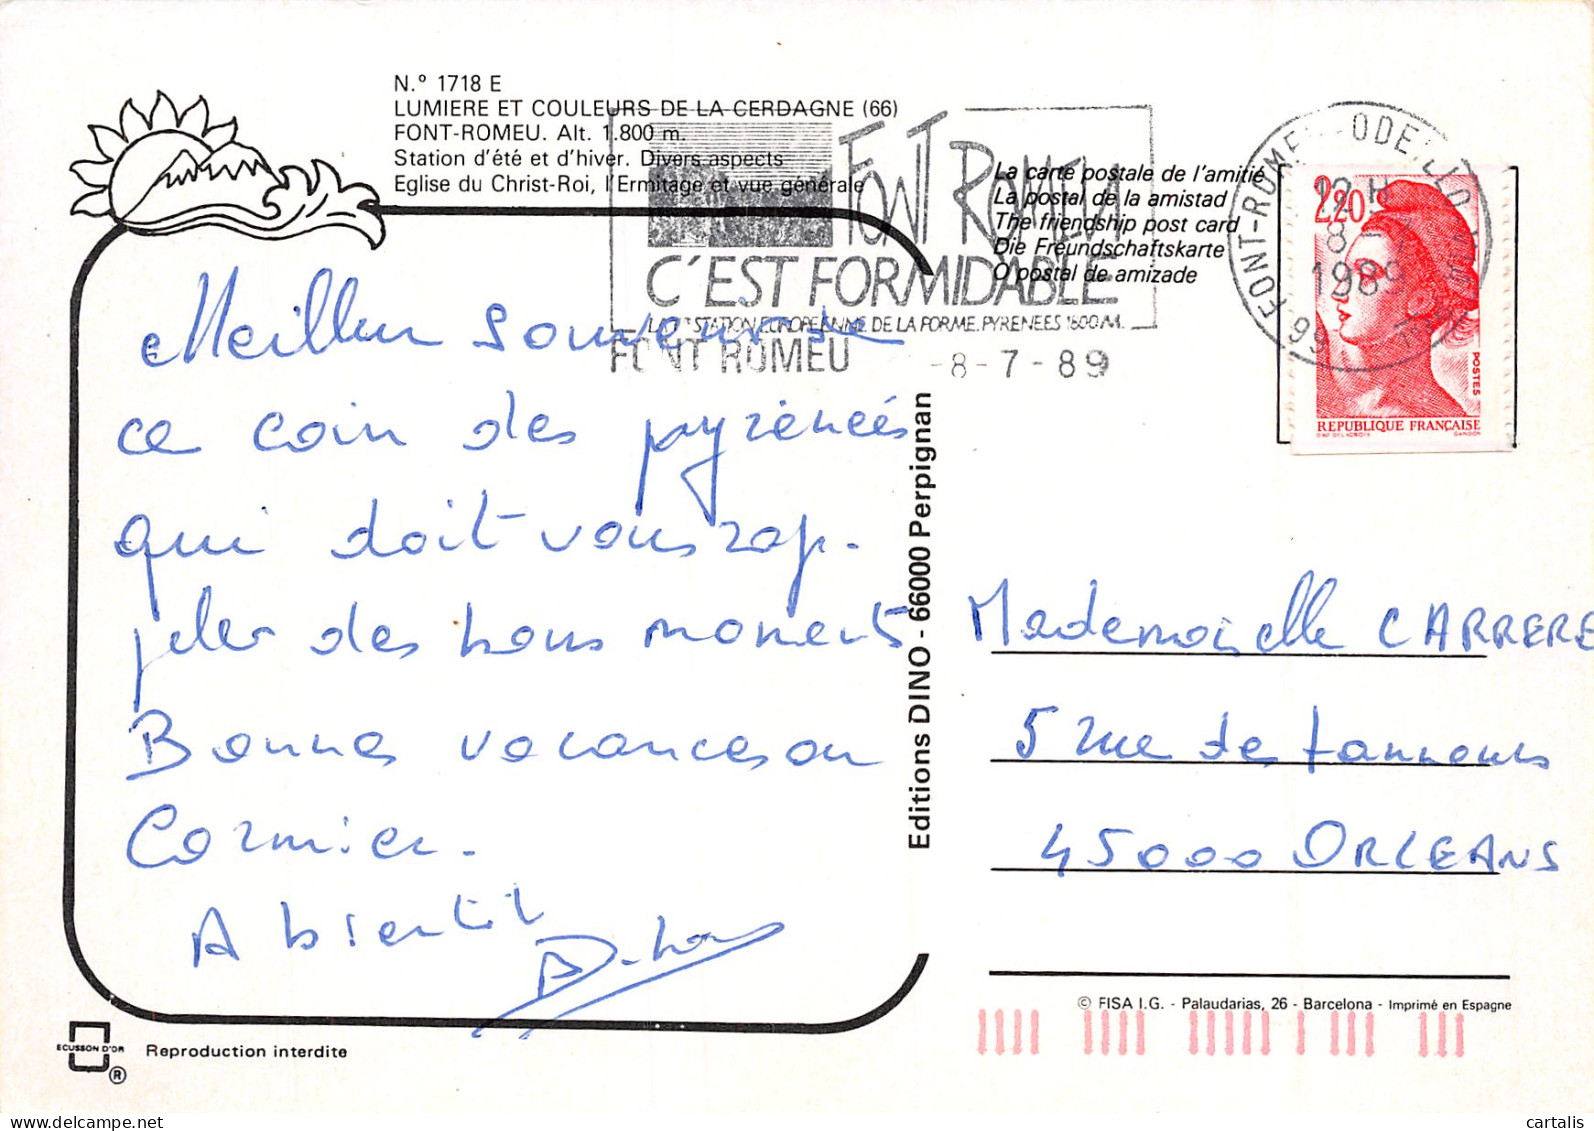 N.º 1718 E
LUMIERE ET COULEURS DE LA CERDAGNE (66)
FONT-ROMEU. Alt. 1.800 m.
Station d'été et d'hiver. Divers aspects
Eglise du Christ-Roi, l'Ermitage et vue générale
FONT ROMEU
C'EST FORMIDABLE
STATION EUROPEENNE DE LA FORME. PYRENEES 1800 M.
FONT ROMEU -8-7-89
La carte postale de l'amitié
La postal de la amistad
The friendship post card
Die Freundschaftskarte
O postal de amizade
66 FONT-ROMEU-ODEILLO
12 H
8-7
1989
2,20
POSTES
REPUBLIQUE FRANÇAISE
D'AP. DELACROIX GANDON
Meilleur souvenir de
ce coin des pyrénées
qui doit vous rap-
peler des bons moments
Bonnes vacances en
Cormier.
A bientôt
Editions DINO - 66000 Perpignan
Mademoiselle CARRERE
5 rue des tanneurs
45000 ORLEANS
© FISA I.G. - Palaudarias, 26 - Barcelona - Imprimé en Espagne
ECUSSON D'OR
®
Reproduction interdite
cartalis